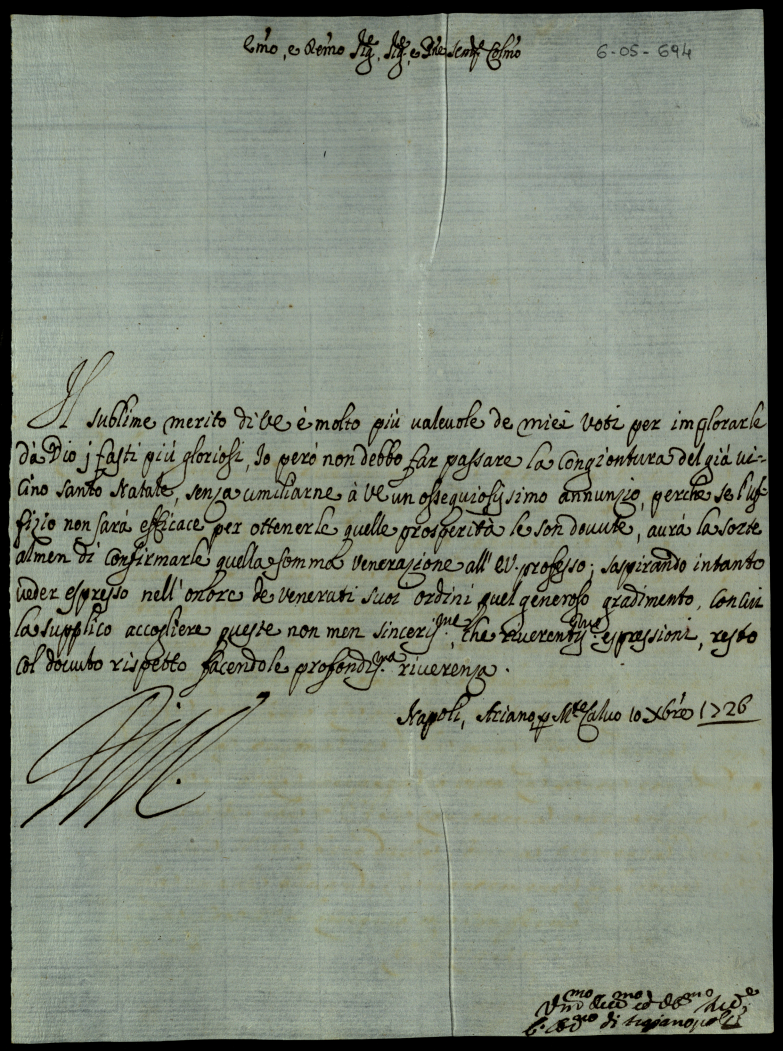 Emo, e Remo Sig.r, Sig.r, e Pne Colmo
6-05-694
Il sublime merito di VE è molto più valeuole de miei voti per implorarle
dà Dio j fasti più gloriosi, Io però non debbo far passare la congiontura del già ui-
cino santo Natale, senza umiliarne à VE un ossequiosissimo annunzio, perche se l'uf-
fizio non sarà efficace per ottenerle quelle prosperità le son douute, aurà la sorte
almen di confirmarle quella somma venerazione all' EV. professo; sospirando intanto
ueder espresso nell' onore de venerati suoi ordini quel generoso gradimento, con cui
la supplico accogliere queste non men sinceriss.me, che riuerentiss.me espressioni, resto
col douuto rispetto facendole profondiss.ma riuerenza.
Napoli, Ariano, p Mte Caluo 10 Xbre 1726
di